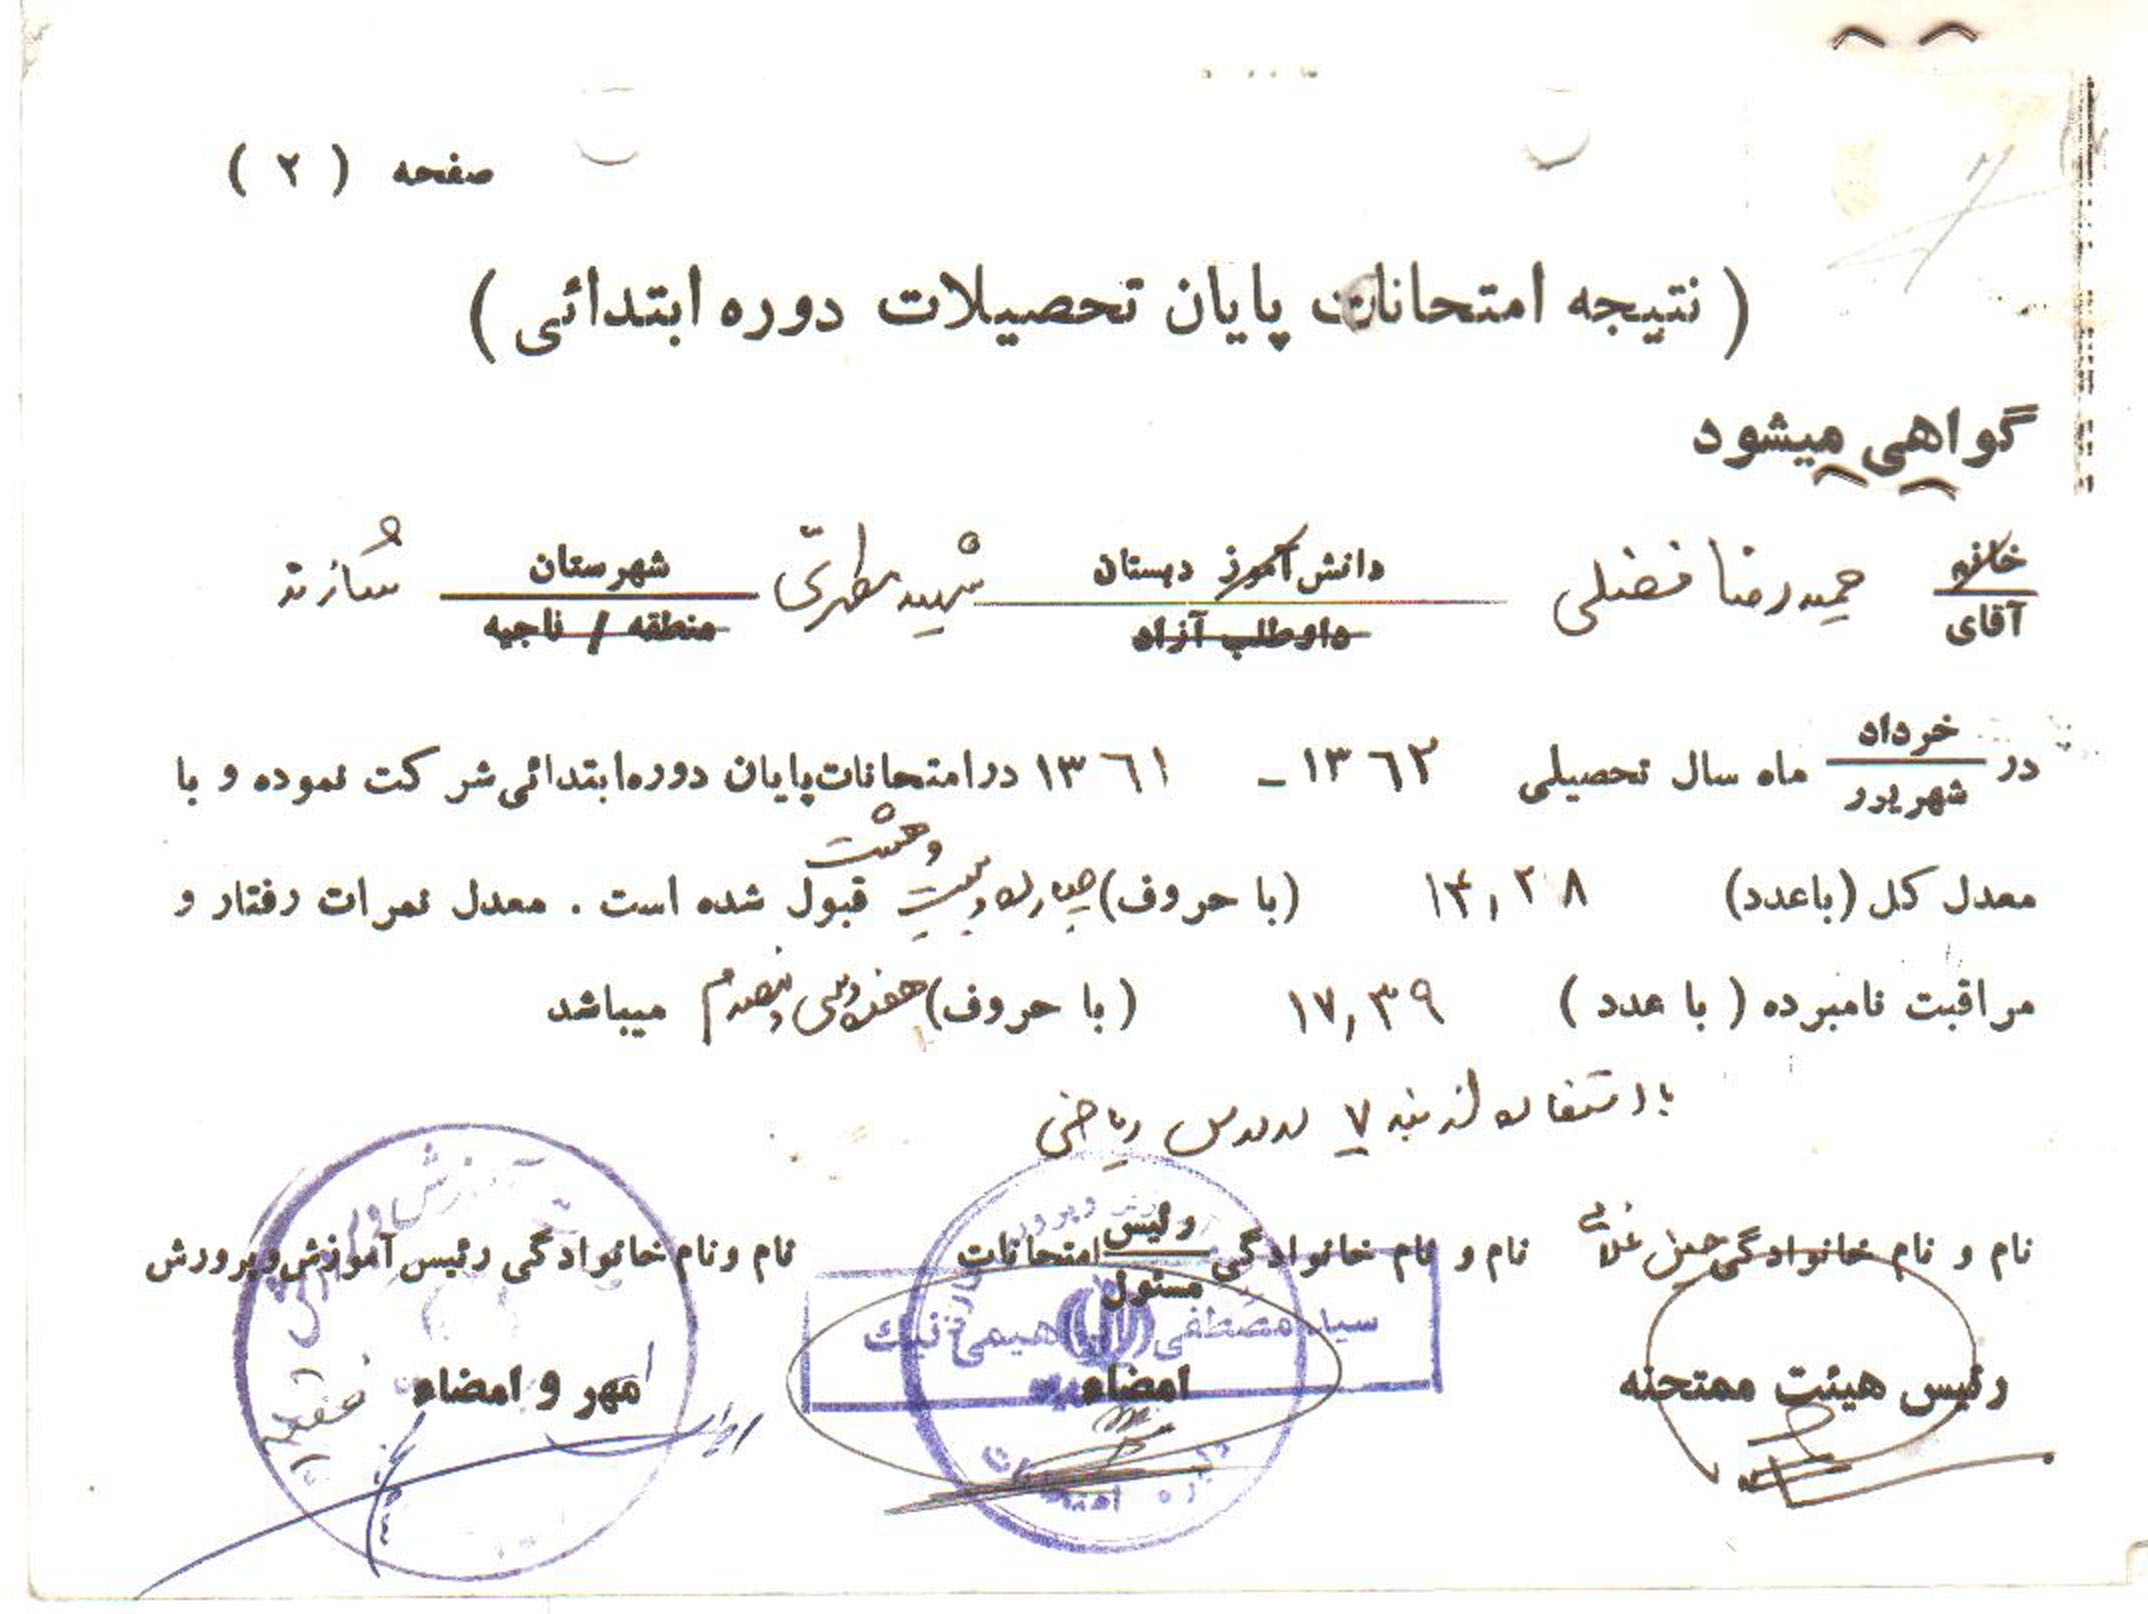 صفحه ( ۲ )
( نتیجه امتحانات پایان تحصیلات دوره ابتدائی )
گواهی میشود
خانم
آقای
حمیدرضا فضلی
دانش‌آموز دبستان
داوطلب آزاد
شهید مطهری
شهرستان
منطقه / ناحیه
شازند
در خرداد
شهریور
ماه سال تحصیلی ۱۳۶۲ - ۱۳۶۱ در امتحانات پایان دوره ابتدائی شرکت نموده و با
معدل کل (باعدد) ۱۴,۲۸ (با حروف) چهارده و بیست و هشت قبول شده است . معدل نمرات رفتار و
مراقبت نامبرده ( با عدد ) ۱۷,۳۹ ( با حروف) هفده و سی و نه صدم میباشد
با استفاده از بند ۷ در درس ریاضی
نام و نام خانوادگی حسین غلامی
رئیس هیئت ممتحنه
نام و نام خانوادگی رئیس
مسئول
امتحانات
سید مصطفی
امضاء
نام و نام خانوادگی رئیس آموزش و پرورش
مهر و امضاء